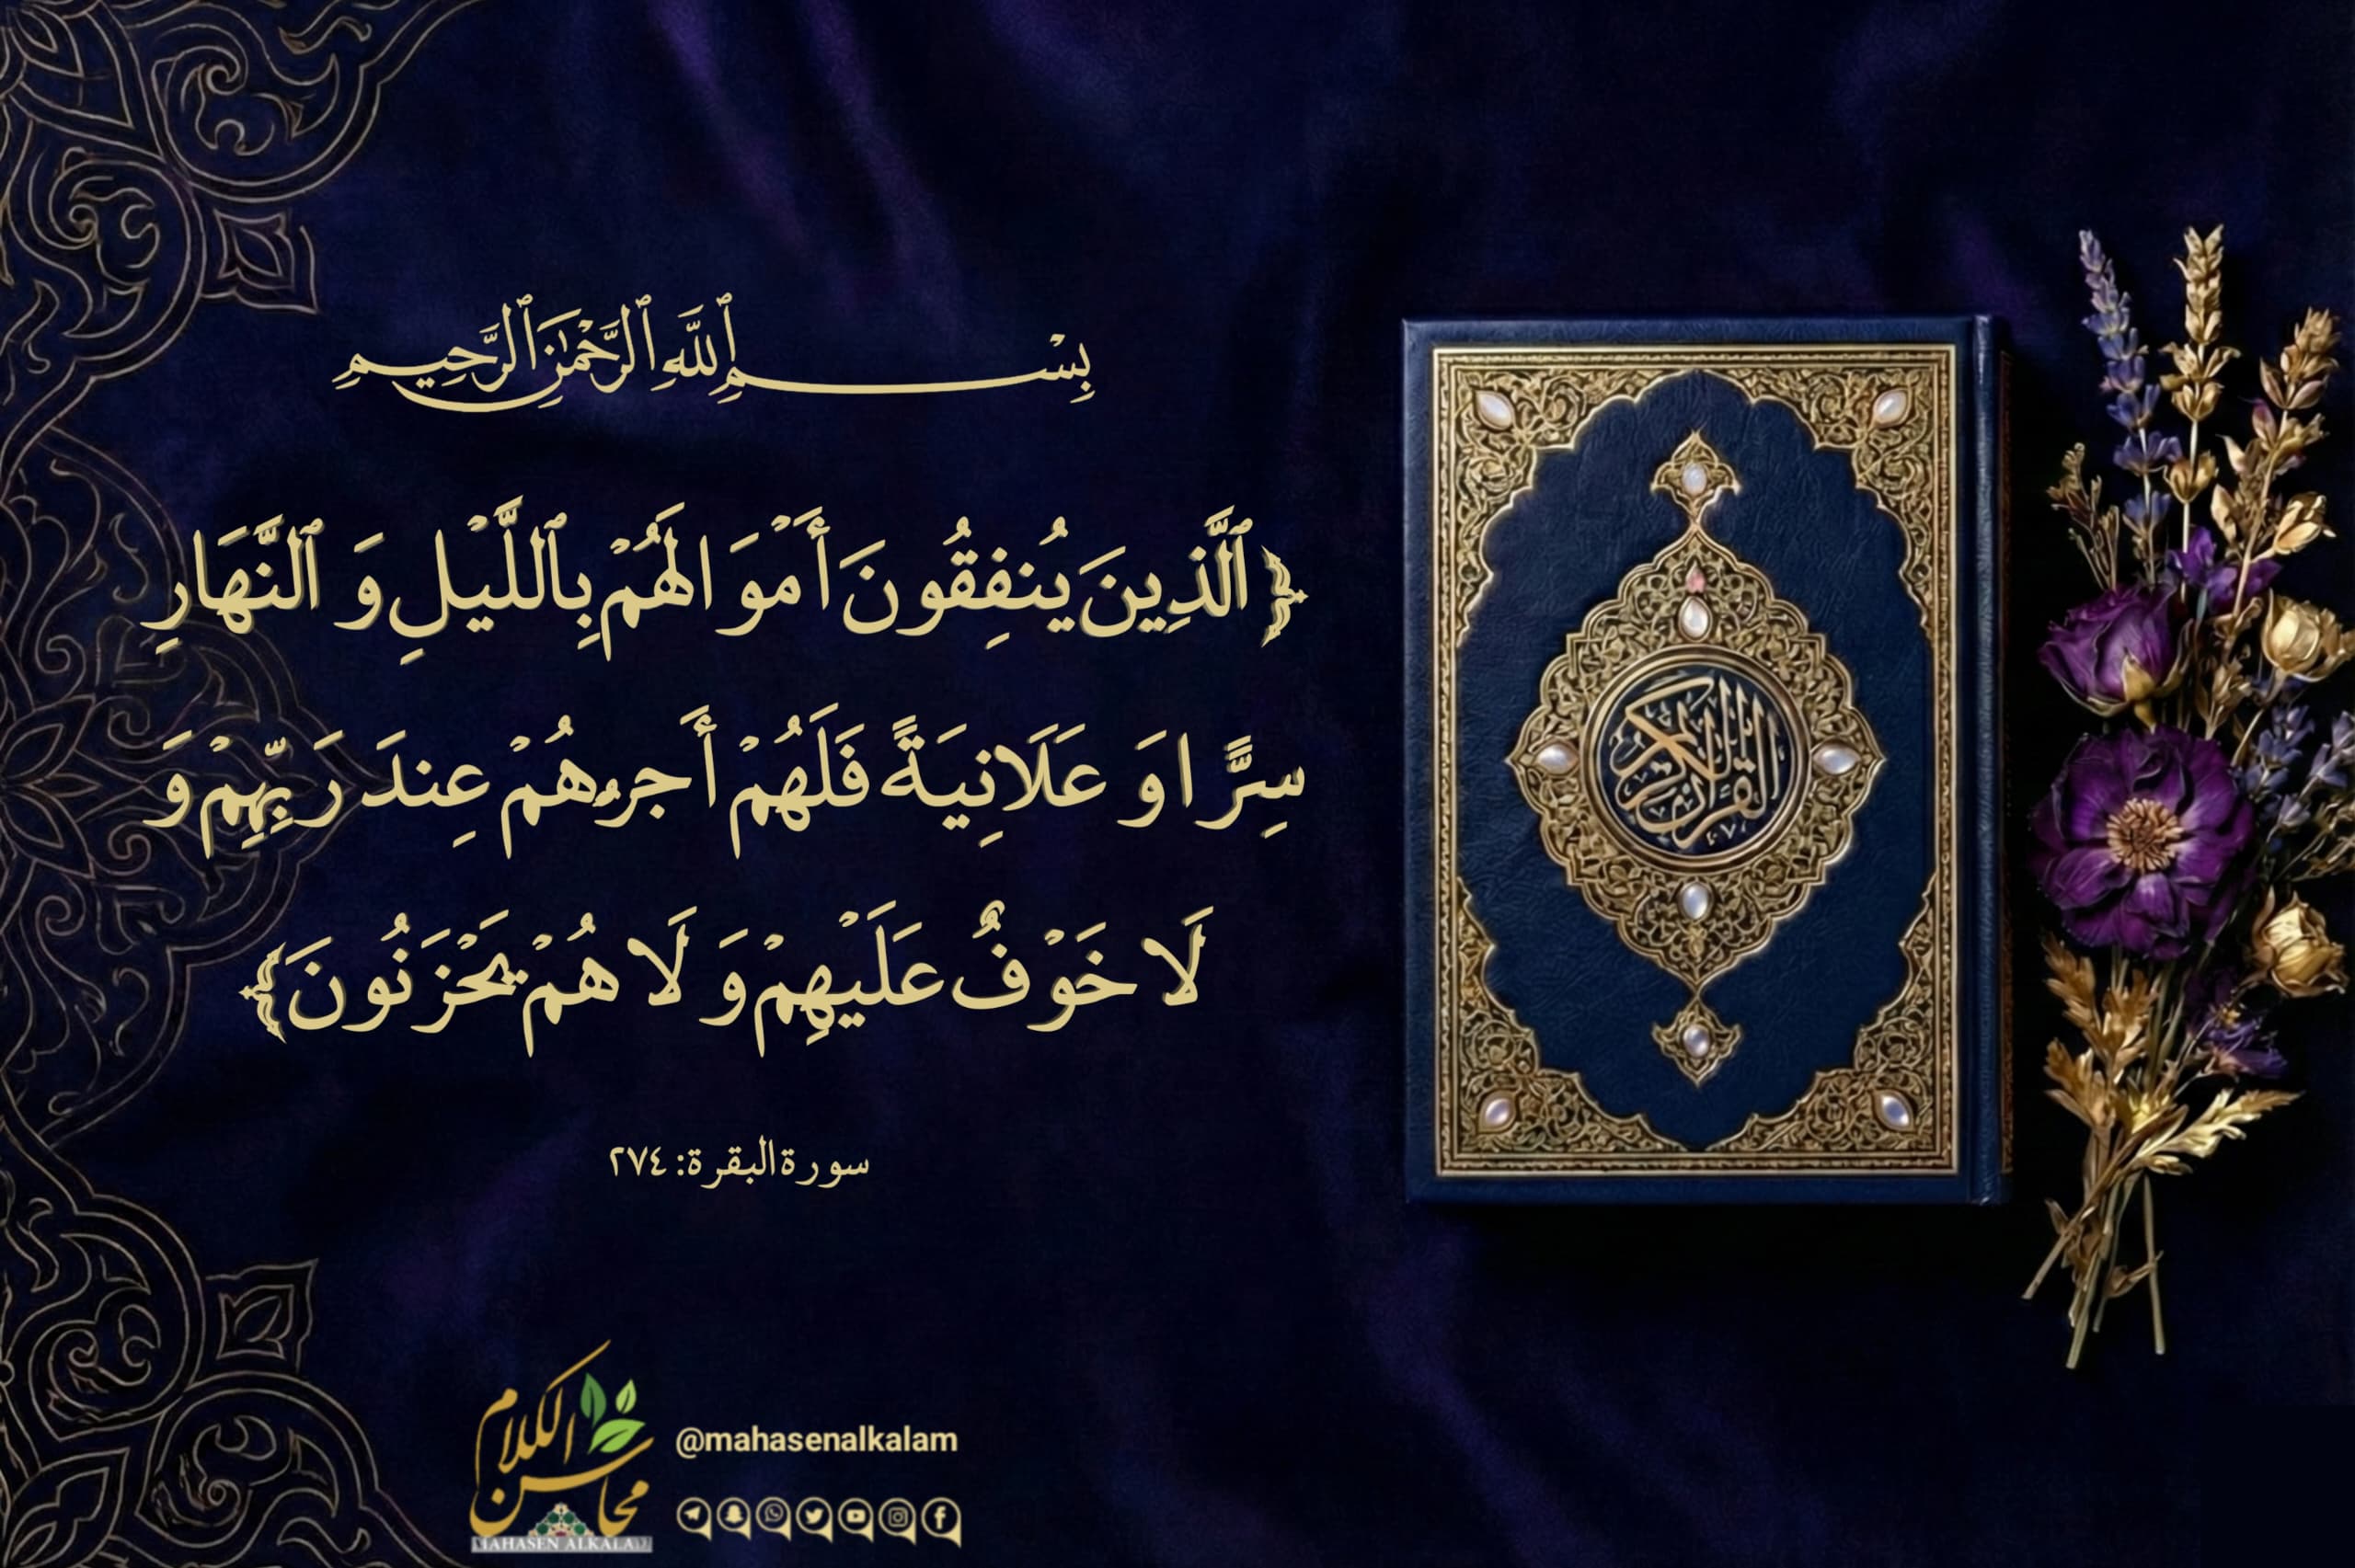 بِسْــــمِ ٱللَّهِ ٱلرَّحْمَٰنِ ٱلرَّحِيمِ
﴿ٱلَّذِينَ يُنفِقُونَ أَمْوَالَهُمْ بِٱللَّيْلِ وَ ٱلنَّهَارِ
سِرًّا وَ عَلَانِيَةً فَلَهُمْ أَجرهُمْ عِندَ رَبِّهِمْ وَ
لَا خَوْفٌ عَلَيْهِمْ وَ لَا هُمْ يَحْزَنُونَ﴾
سورة البقرة: ٢٧٤
القرآن الكريم
محاسن الكلام
MAHASEN ALKALAM
@mahasenalkalam